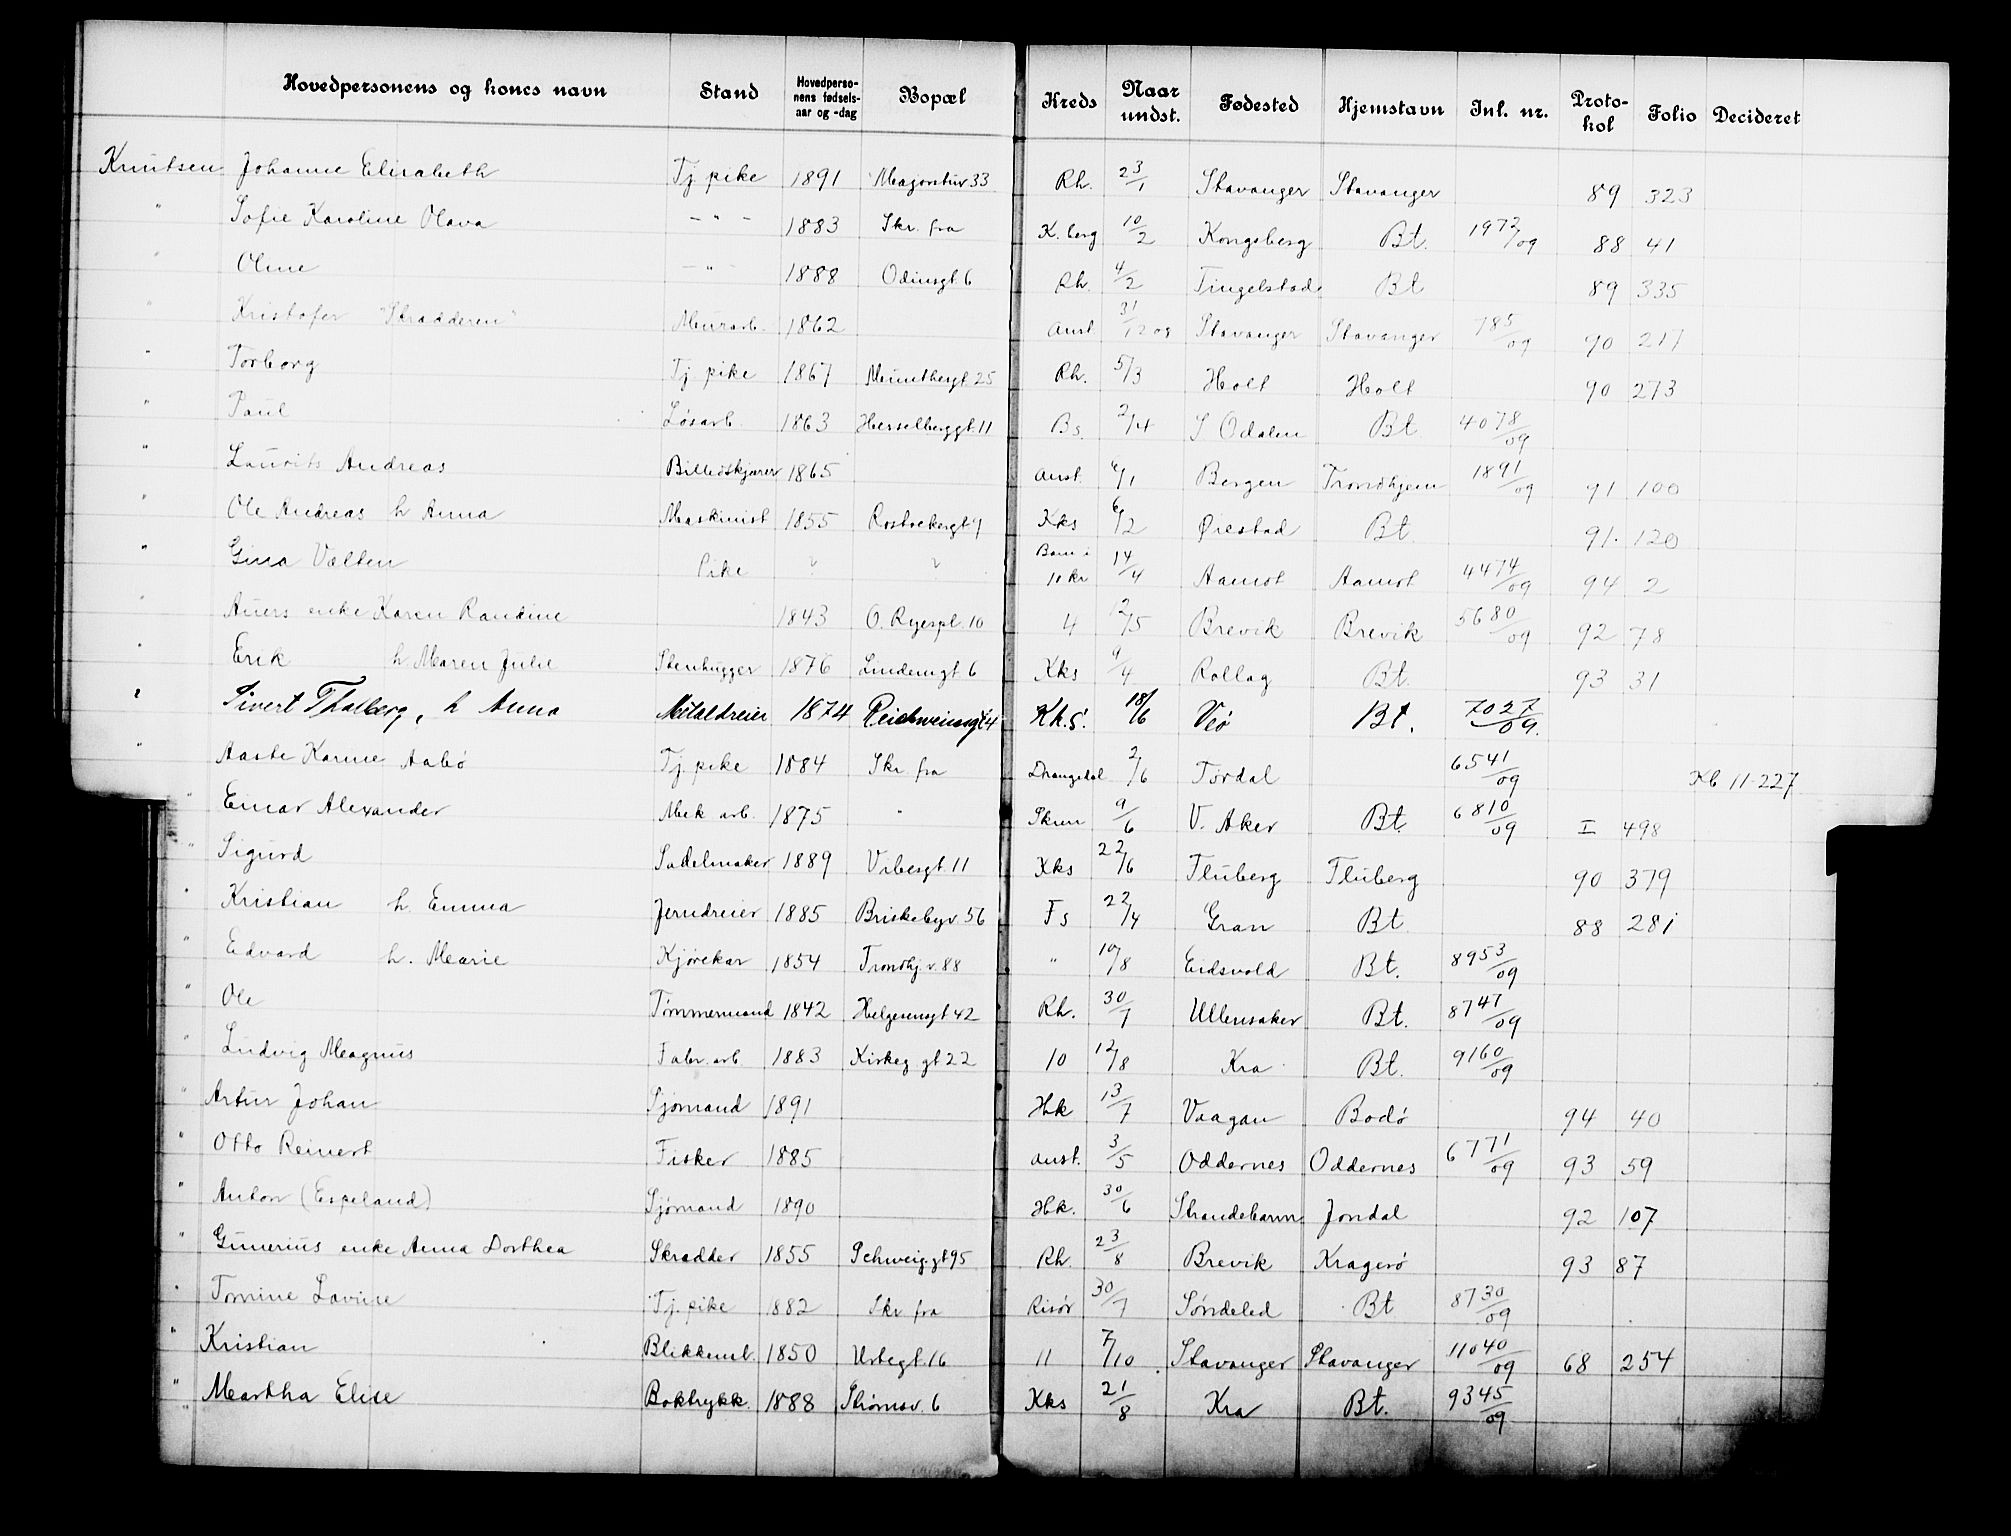 Hovedpersonens og kones navn | Stand | Hovedpersonens fødselsaar og -dag | Bopæl | Kreds | Naar undst. | Fødested | Hjemstavn | Inl. nr. | Protokol | Folio | Decideret
Knutsen Johanne Elisabeth | Tj. pike | 1891 | Majorstuv 33 | Rh. | 23/1 | Stavanger | Stavanger | | 89 | 323
" Sofie Karoline Olava | - " - | 1883 | Skr. fra | K.berg | 10/2 | Kongsberg | Bt. | 1972/09 | 88 | 41
" Oline | - " - | 1888 | Odinsgt 6 | Rh. | 4/2 | Tingelstad | Bt | | 89 | 335
" Kristofer "Skrædderen" | Murarb. | 1862 | | Anst | 31/12 08 | Stavanger | Stavanger | 785/09 | 90 | 217
" Torborg | Tj. pike | 1867 | Munthesgt. 25 | Rh. | 5/3 | Holt | Holt | | 90 | 273
" Paul | Løsarb. | 1863 | Herselberggt. 11 | Bs. | 2/4 | S Odalen | Bt | 4078/09
" Laurits Andreas | Billedskjærer | 1865 | | Anst. | 6/1 | Bergen | Trondhjem | 1891/09 | 91 | 100
" Ole Andreas h Anna | Maskinist | 1855 | Rostockergt 9 | Kks | 6/2 | Øiestad | Bt | | 91. | 120
" Gina Valten | Pike | " | " | Barn i 10 kr | 14/4 | Aamot | Aamot | 4474/09 | 94 | 2
" Auers enke Karen Randine | | 1843 | O. Ryespl. 10 | 4 | 12/5 | Brevik | Brevik | 5680/09 | 92 | 78
" Erik h. Maren Julie | Stenhugger | 1876 | Lindemgt 6 | Kks | 9/4 | Rollag | Bt. | | 93 | 31
" Sivert Thalberg, h Anna | Metaldreier | 1874 | | Kh.S. | 18/6 | Veø | Bt. | 7027/09.
" Aaste Karine Aabø | Tj. pike | 1884 | Skr. fra | Drangedal | 2/6 | Tørdal | | 6541/09 | | | Kb 11-227
" Einar Alexander | Mek arb. | 1875 | " | Skien | 9/6 | V. Aker | Bt. | 6810/09 | I | 498
" Sigurd | Sadelmaker | 1889 | Vibesgt. 11 | Kks | 22/6 | Fluberg | Fluberg | | 90 | 379
" Kristian h. Emma | Jerndreier | 1885 | Briskebyv. 56 | Fs | 22/4 | Gran | Bt. | | 88 | 281
" Edvard h. Marie | Kjørekar | 1854 | Trondhj.v. 88 | " | 10/8 | Eidsvold | Bt. | 8953/09
" Ole | Tømmermand | 1842 | Helgesensgt 42 | Rh. | 30/7 | Ullensaker | Bt. | 8747/09
" Ludvig Magnus | Fabr. arb. | 1883 | Kirkeg gt 22 | 10 | 12/8 | Kra | Bt. | 9160/09
" Artur Johan | Sjømand | 1891 | | Hk | 13/7 | Vaagan | Bodø | | 94 | 40
" Otto Reinert | Fisker | 1885 | | Anst. | 3/5 | Oddernes | Oddernes | 6771/09 | 93 | 59
" Anton (Espeland) | Sjømand | 1890 | | Hk. | 30/6 | Strandebarm | Jondal | | 92 | 107
" Gunerius enke Anna Dorthea | Skrædder | 1855 | Schweig.gt 95 | Rh. | 23/8 | Brevik | Kragerø | | 93 | 87
" Tomine Lavise | Tj. pike | 1882 | Skr fra | Risør | 30/7 | Søndeled | Bt | 8730/09
" Kristian | Blikkensl. | 1850 | Urtegt. 16 | 11 | 7/10 | Stavanger | Stavanger | 11040/09 | 68 | 254
" Martha Elise | Boktrykk. | 1888 | Strømsv. 6 | Kks | 21/8 | Kra | Bt. | 9345/09